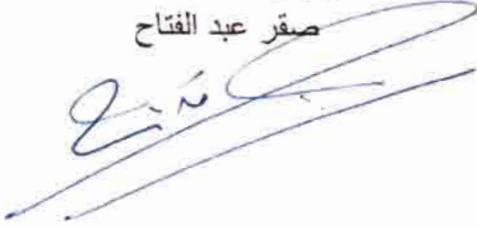 صقر عبد الفتاح